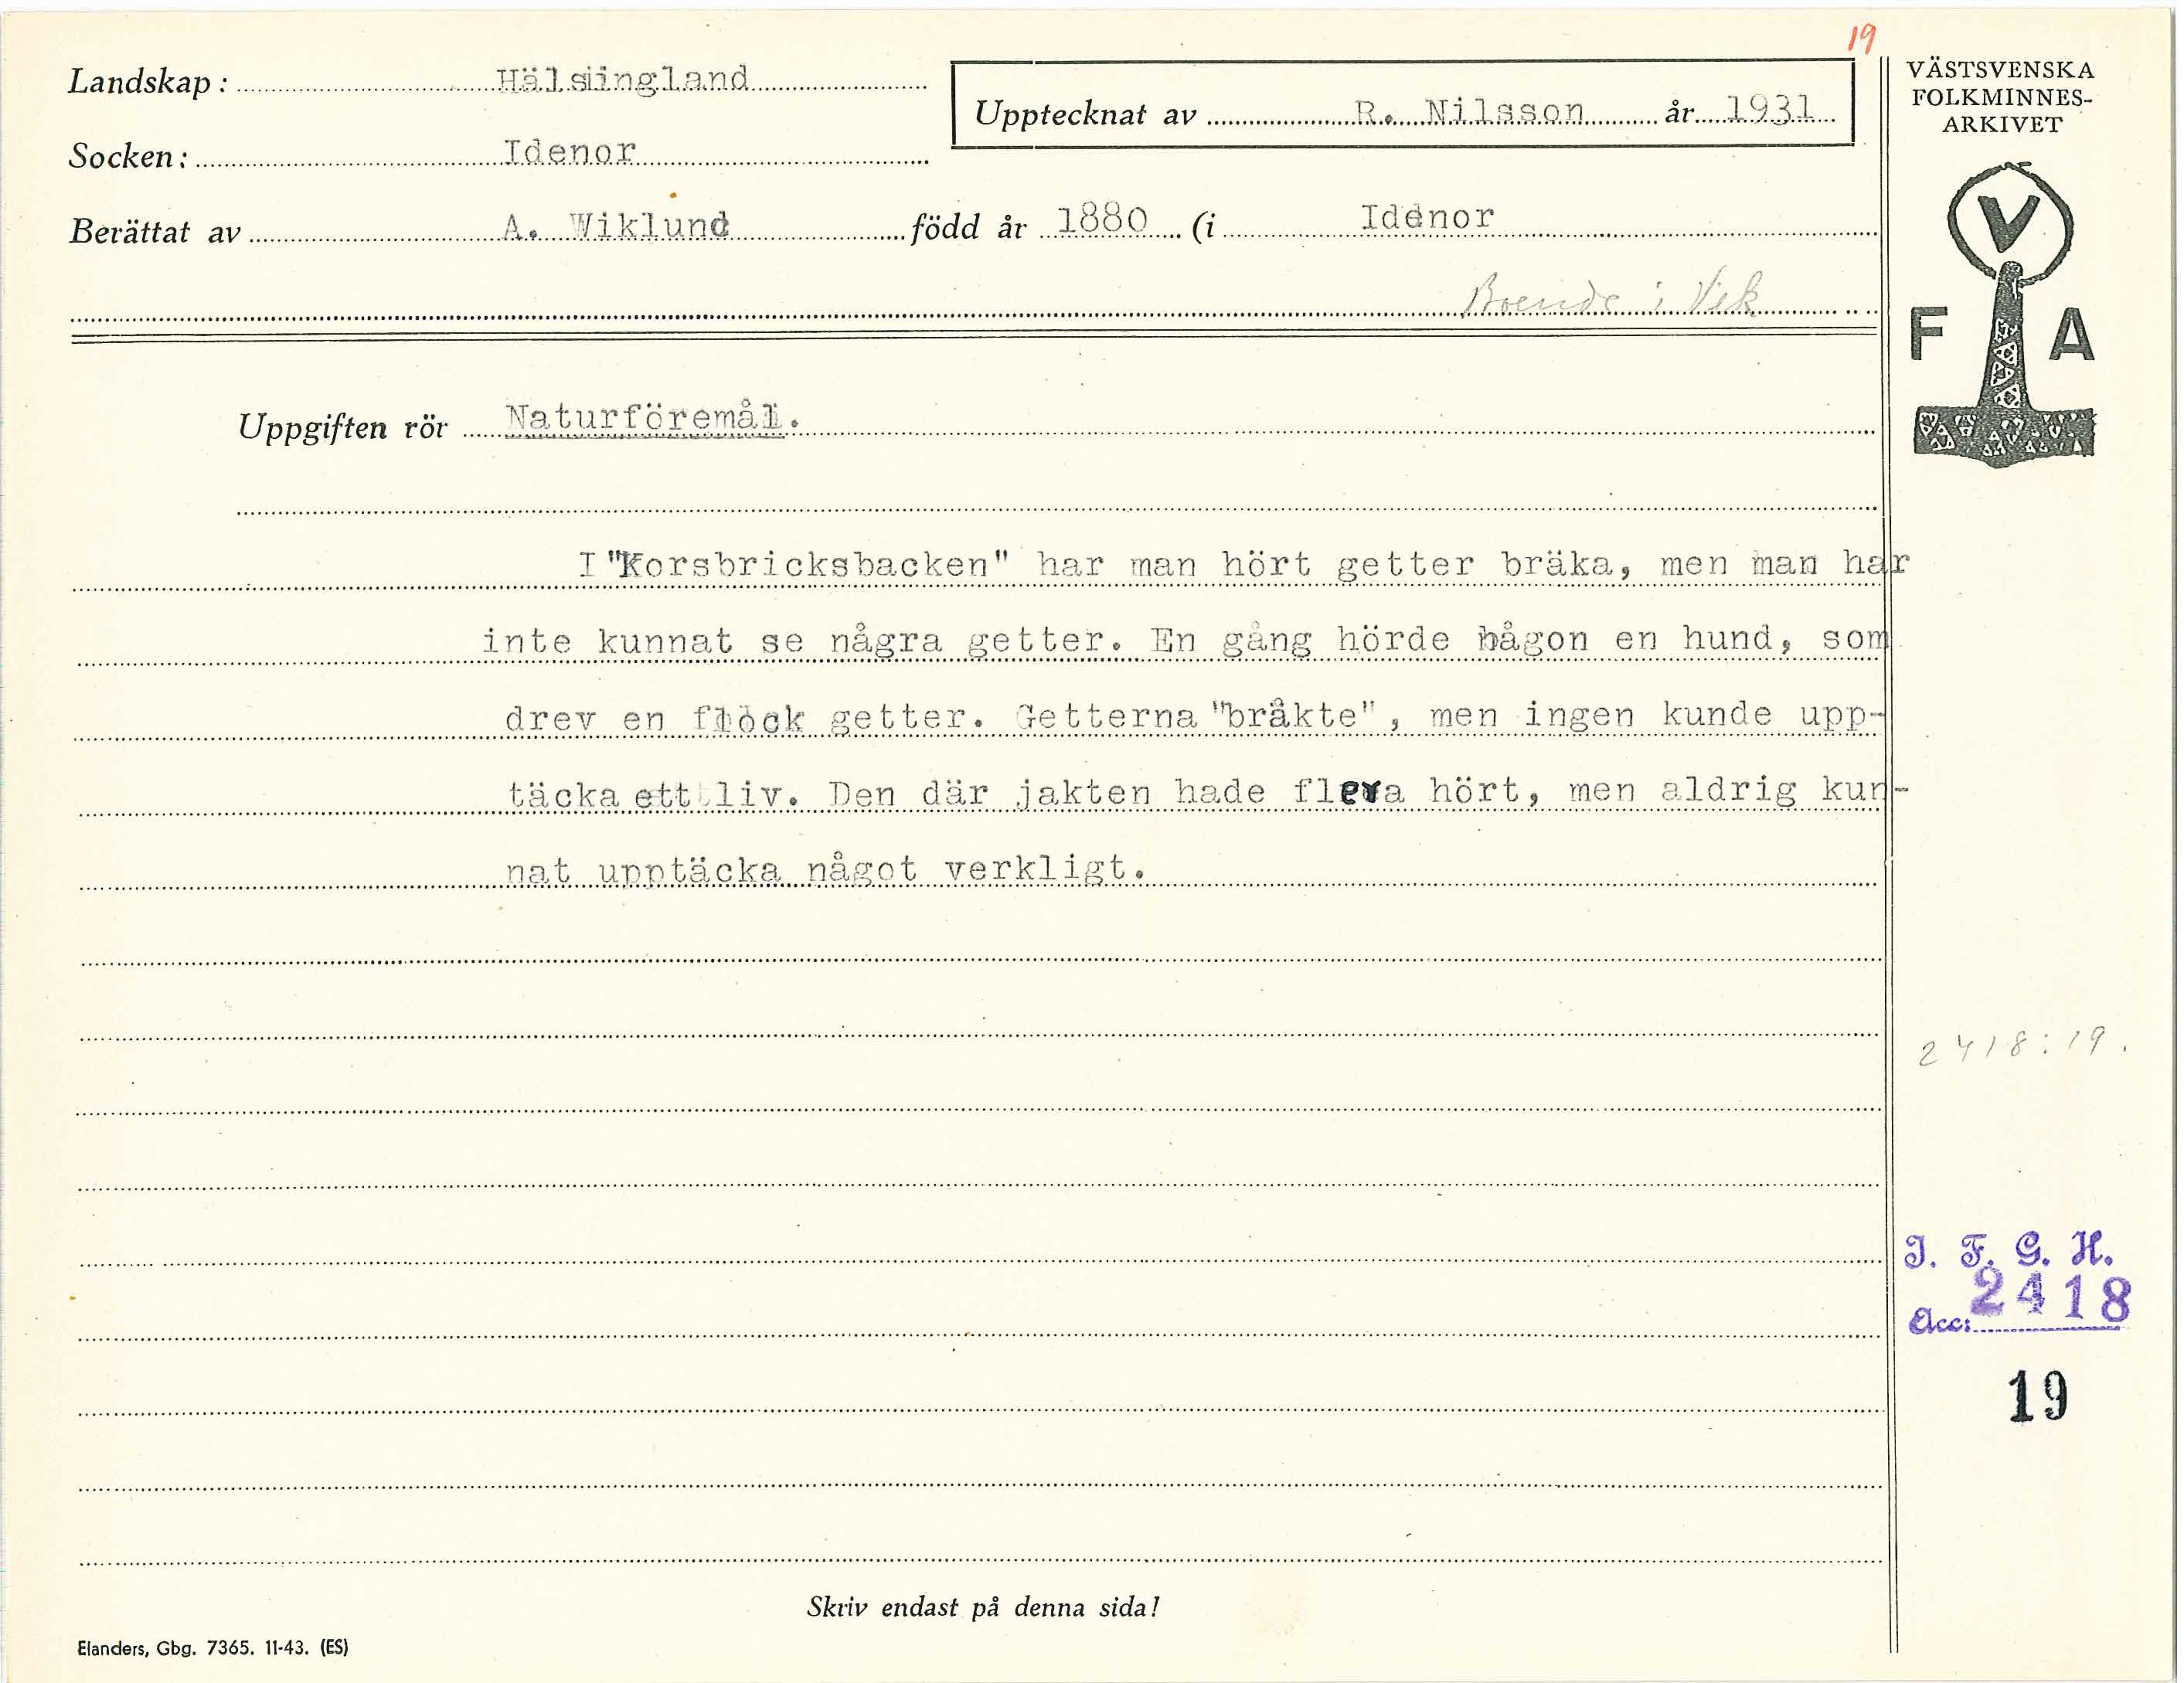 19
Landskap: Hälsingland
Upptecknat av R. Nilsson år 1931
Socken: Idenor
Berättat av A. Wiklund född år 1880 (i Idenor
Boende i Vik
Uppgiften rör Naturföremål.
I "Korsbricksbacken" har man hört getter bräka, men man har
inte kunnat se några getter. En gång hörde någon en hund, som
drev en flock getter. Getterna "bräkte", men ingen kunde upp-
täcka ett liv. Den där jakten hade flera hört, men aldrig kun-
nat upptäcka något verkligt.
Skriv endast på denna sida!
Elanders, Gbg. 7365. 11-43. (ES)
VÄSTSVENSKA
FOLKMINNES-
ARKIVET
V
F A
2418:19.
I. F. G. H.
Acc: 2418
19